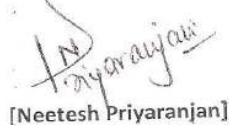 N Priyaranjan
[Neetesh Priyaranjan]